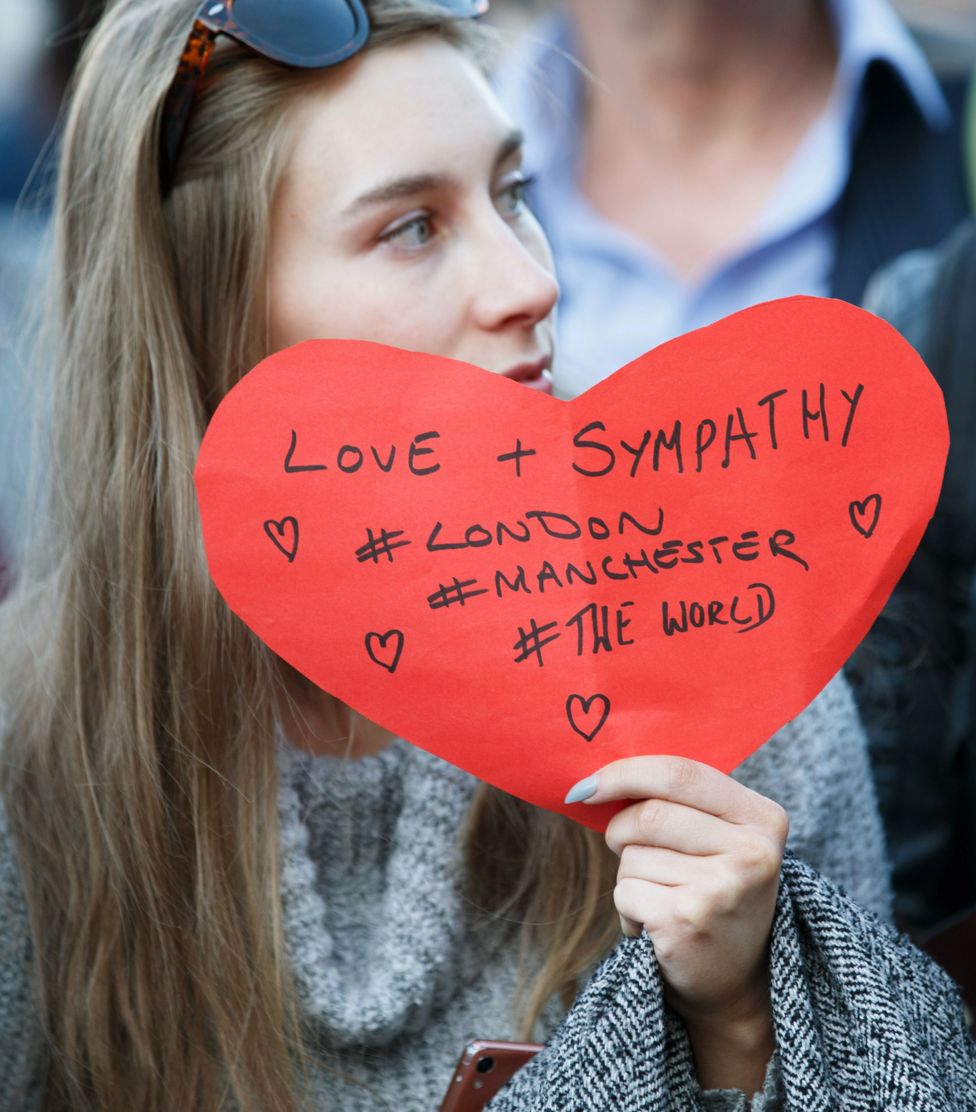 LOVE + SYMPATHY
#LONDON
#MANCHESTER
#THE WORLD